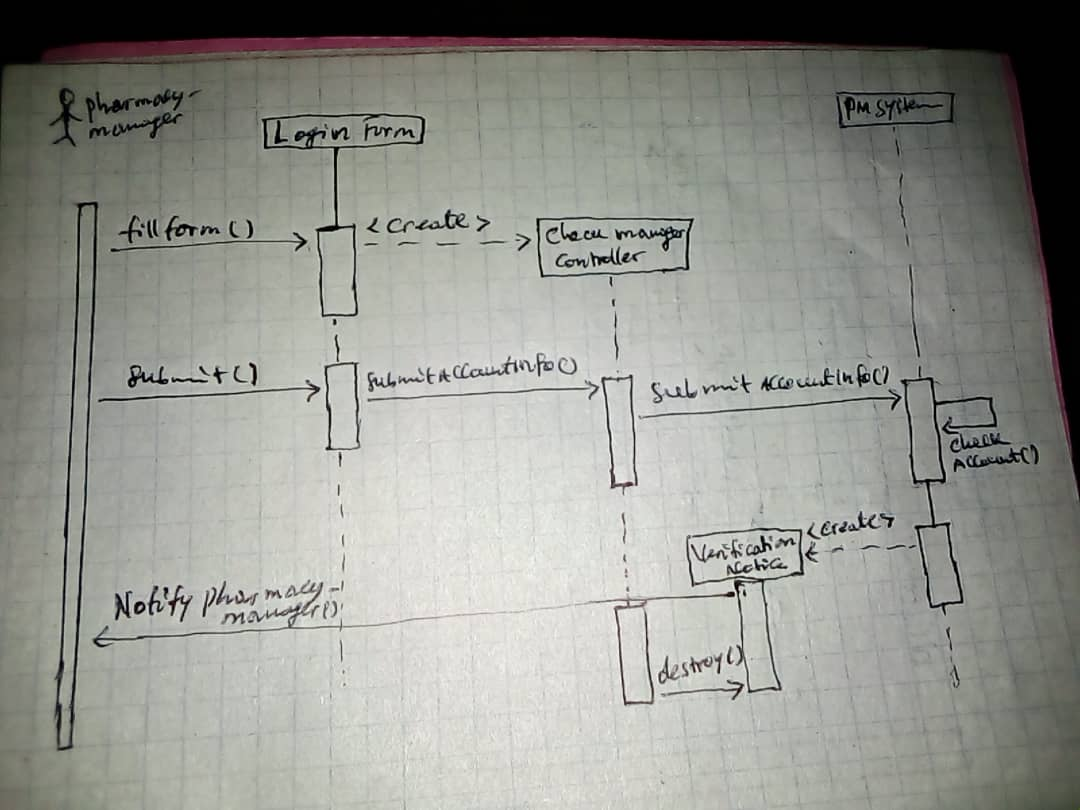 pharmacy-
manager
Login Form
PM System
fillform()
<create>
Check manager
Controller
Submit()
SubmitAccountInfo()
Submit AccountInfo()
Check
Account()
<create>
Verification
Notice
Notify pharmacy-
manager()
destroy()